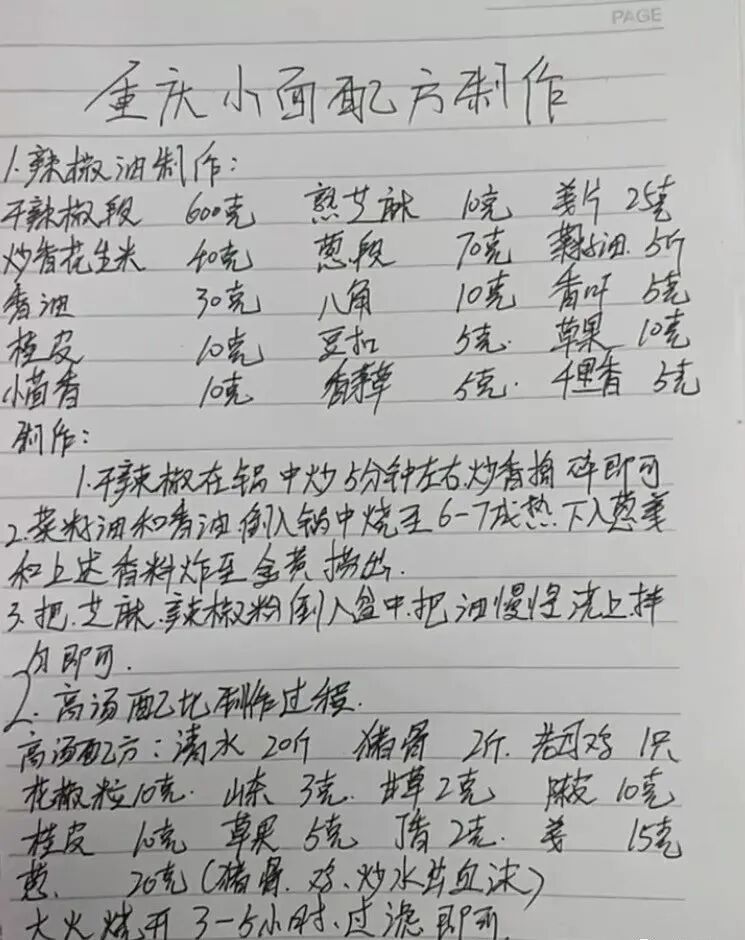 PAGE
重庆小面配方制作
1.辣椒油制作:
干辣椒段 600克 熟芝麻 10克 姜片 25克
炒香花生米 40克 葱段 70克 菜籽油 5斤
香油 30克 八角 10克 香叶 5克
桂皮 10克 豆扣 5克. 草果 10克
小茴香 10克 香茅草 5克. 千里香 5克
制作:
1.干辣椒在锅中炒5分钟左右.炒香捣碎即可
2.菜籽油和香油倒入锅中烧至6-7成热.下入葱姜
和上述香料炸至金黄捞出.
3.把.芝麻.辣椒粉倒入盆中.把油慢慢浇上.拌
匀即可.
2.高汤配比制作过程.
高汤配方:清水 20斤 猪骨 2斤. 老母鸡 1只
花椒粒10克. 山柰 3克. 甘草2克 陈皮 10克
桂皮 10克 草果 5克 丁香 2克. 姜 15克
葱. 20克(猪骨.鸡、炒水出血沫)
大火烧开3-5小时、过滤即可.